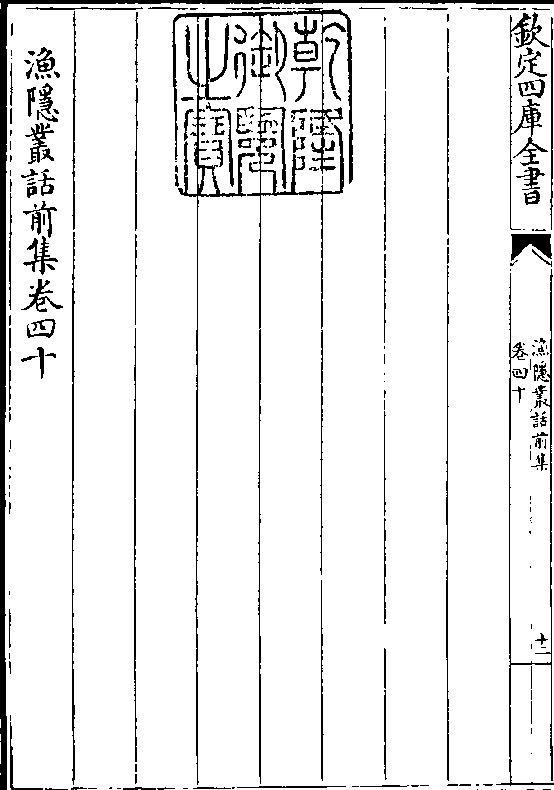 欽定四庫全書
漁隱叢話前集
卷四十
十二
乾隆
御覽
之寶
漁隱叢話前集卷四十